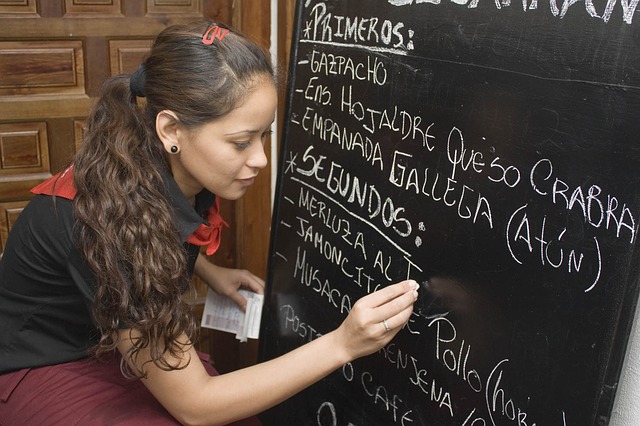 *PRIMEROS:
- GAZPACHO
- ENS. HOJALDRE QUESO CRABRA
- EMPANADA GALLEGA (ATÚN)
*SEGUNDOS:
- MERLUZA AL
- JAMONCITO DE POLLO
- MUSACA
CAFE